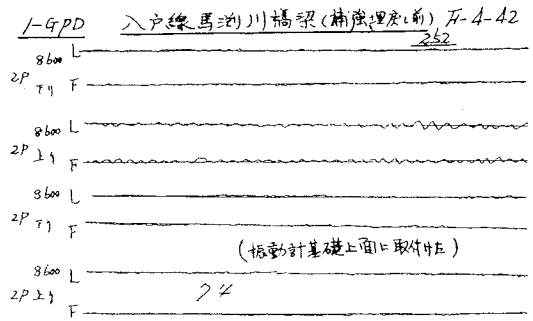 1-GPD 八戸線馬渕川橋梁(補強埋戻し前) F-4-42
252
8600 L
2P 下り F
8600 L
2P 上り F
8600 L
2P 下り F
(振動計基礎上面に取付け)
8600 L
2P 上り F